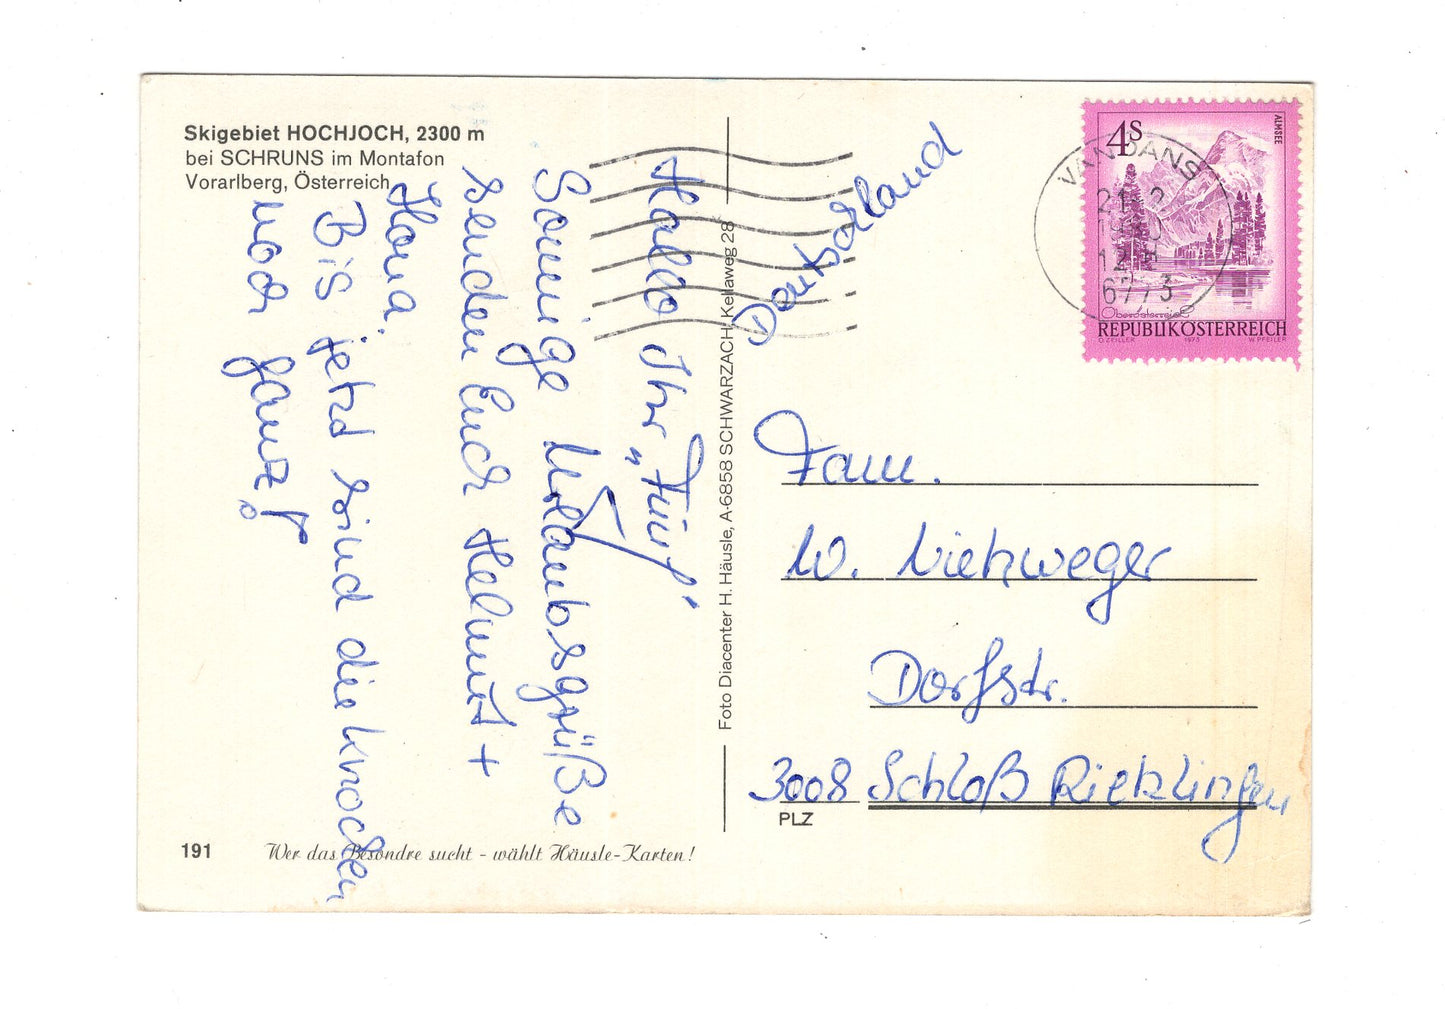 Skigebiet HOCHJOCH, 2300 m
bei SCHRUNS im Montafon
Vorarlberg, Österreich
Hallo Ihr „Fünf“
Sonnige Urlaubsgrüße
senden Euch Helmut +
Ilona.
Bis jetzt sind die Knochen
noch ganz!
191
Wer das Besondre sucht - wählt Häusle-Karten!
Foto Diacenter H. Häusle, A-6858 SCHWARZACH, Kellaweg 28
Deutschland
4S
ALMSEE
VANDANS
6773
Oberösterreich
REPUBLIK ÖSTERREICH
O. ZEILLER 1973 W. PFEILER
Fam.
W. Viehweger
Dorfstr.
3008 Schloß Ricklingen
PLZ